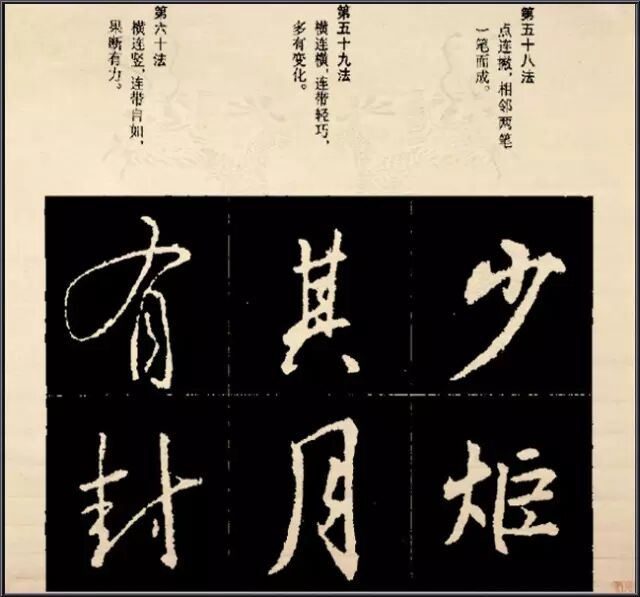 第五十八法
点连撇，相邻两笔
一笔而成。
第五十九法
横连横，连带轻巧，
多有变化。
第六十法
横连竖，连带自如，
果断有力。
少
炬
其
月
有
封